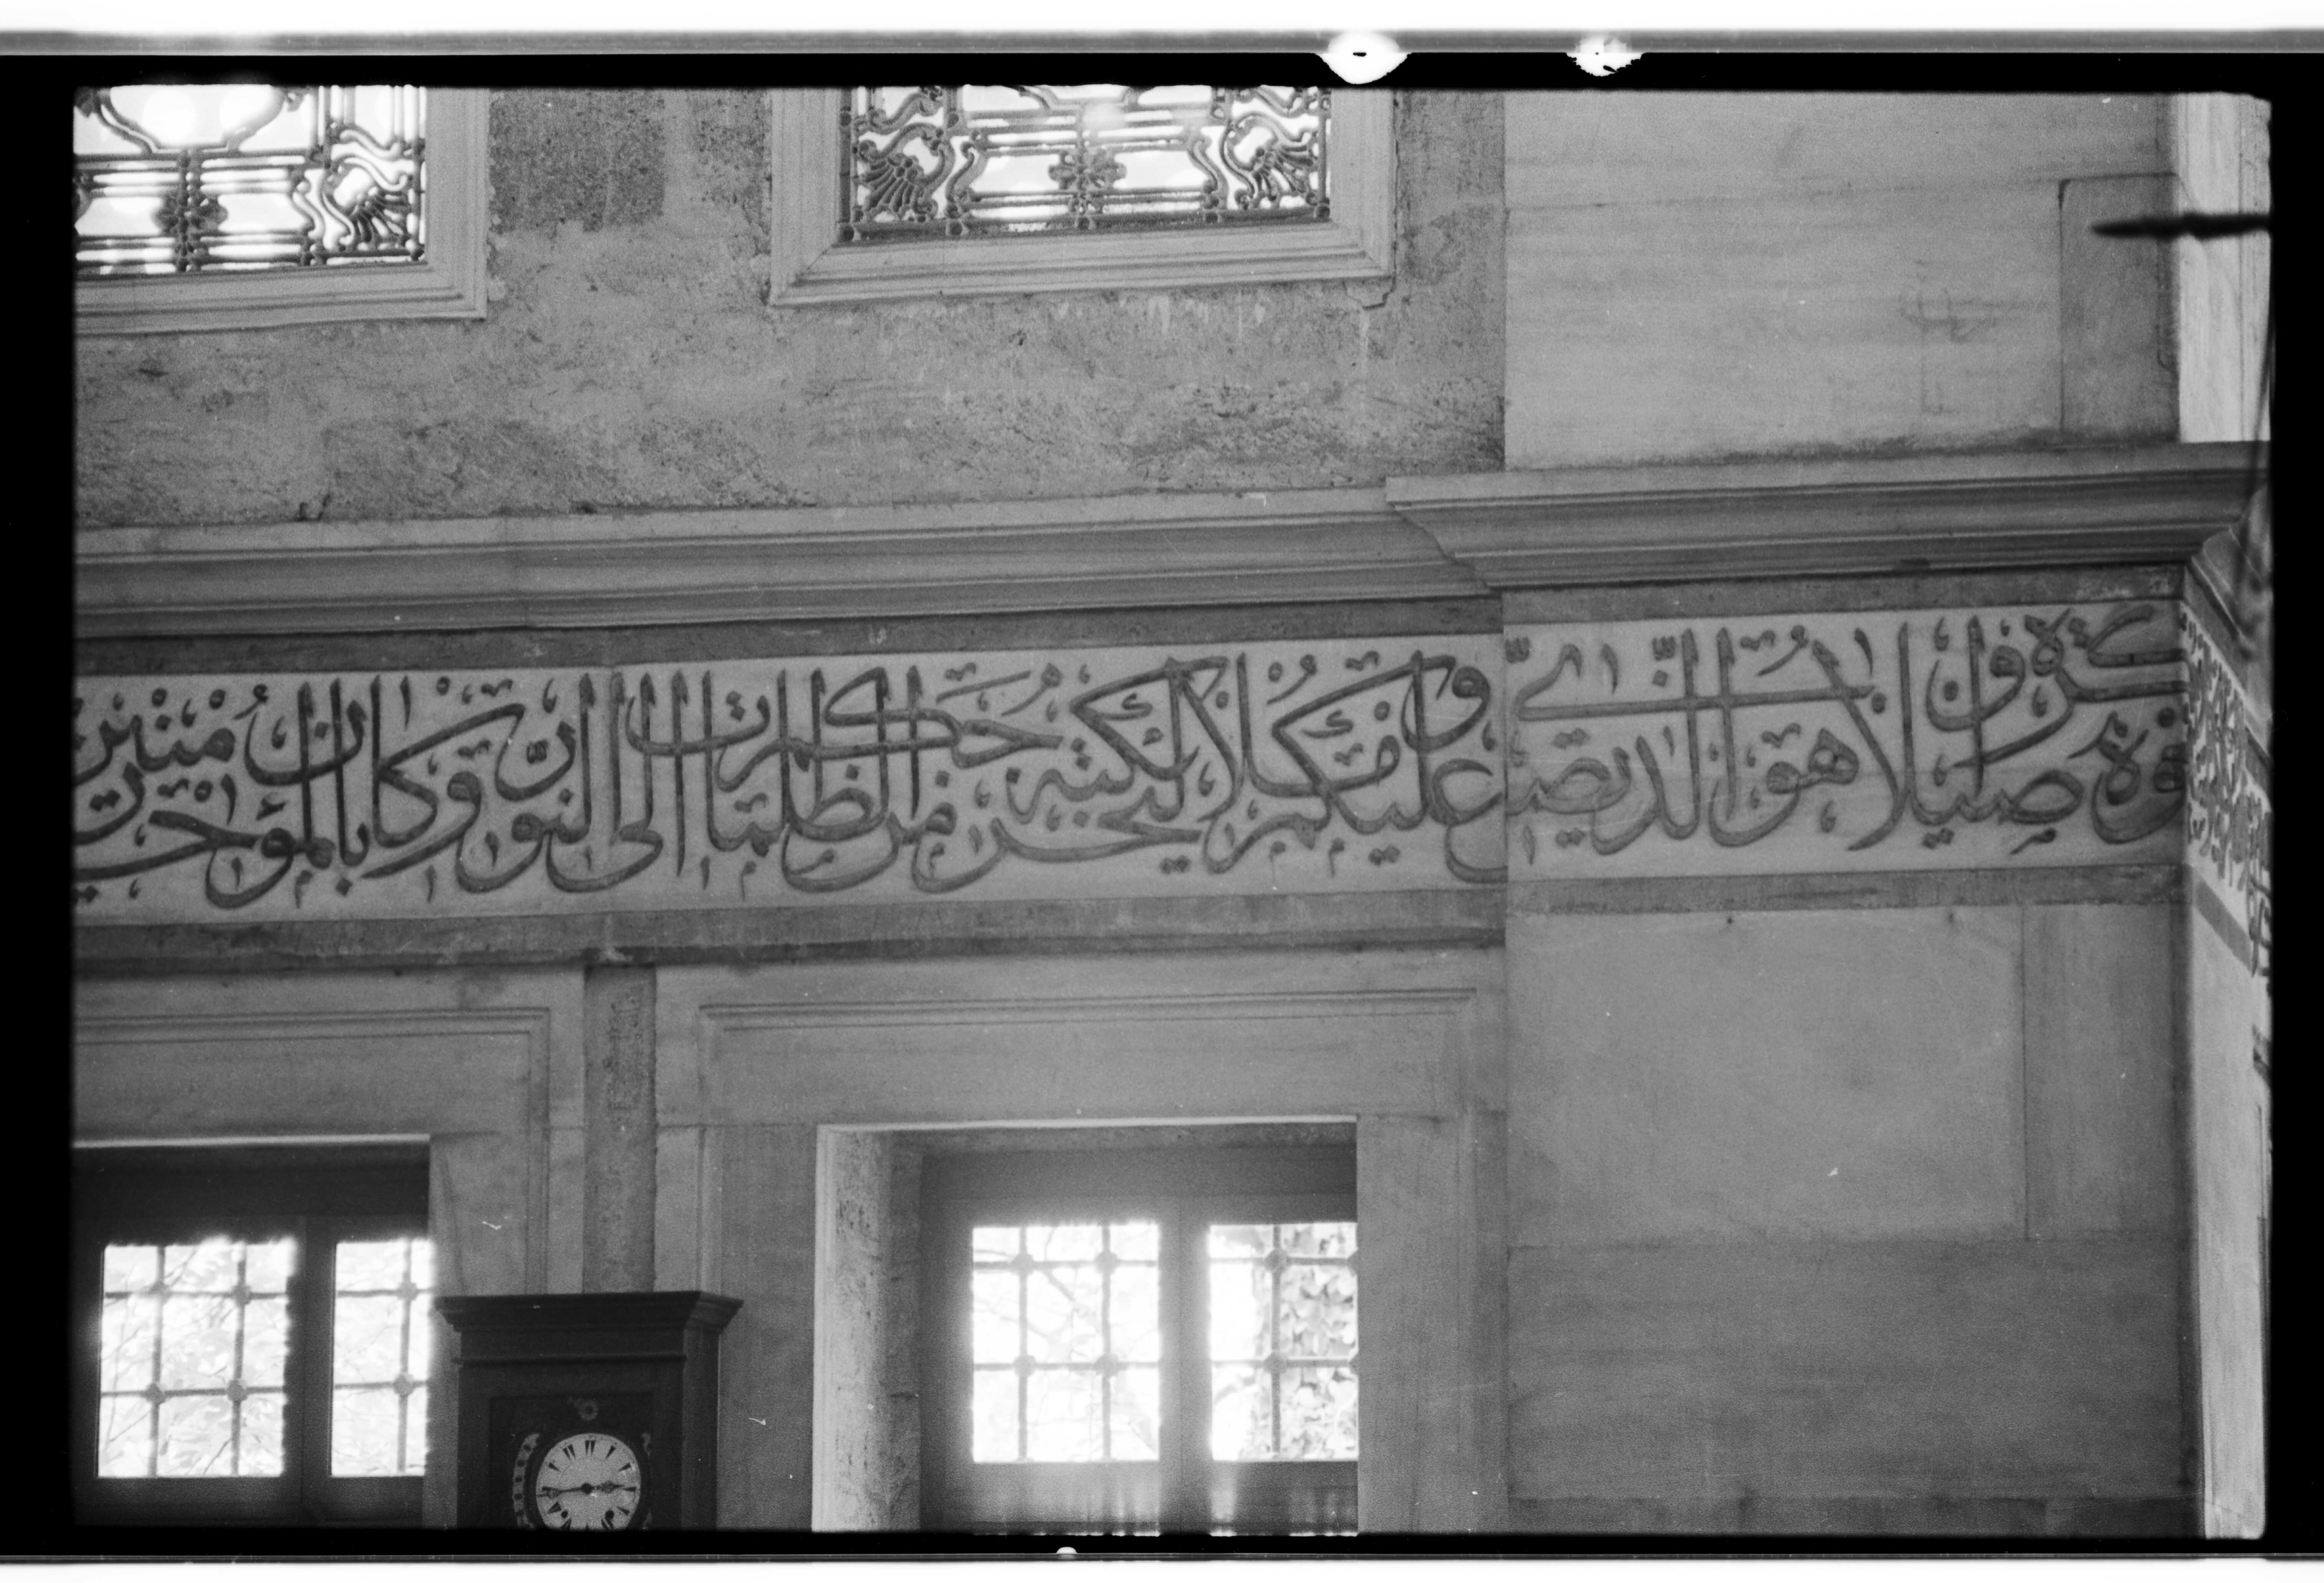 بكرة وأصيلا هو الذي يصلي عليكم وملائكته ليخرجكم من الظلمات إلى النور وكان بالمؤمنين